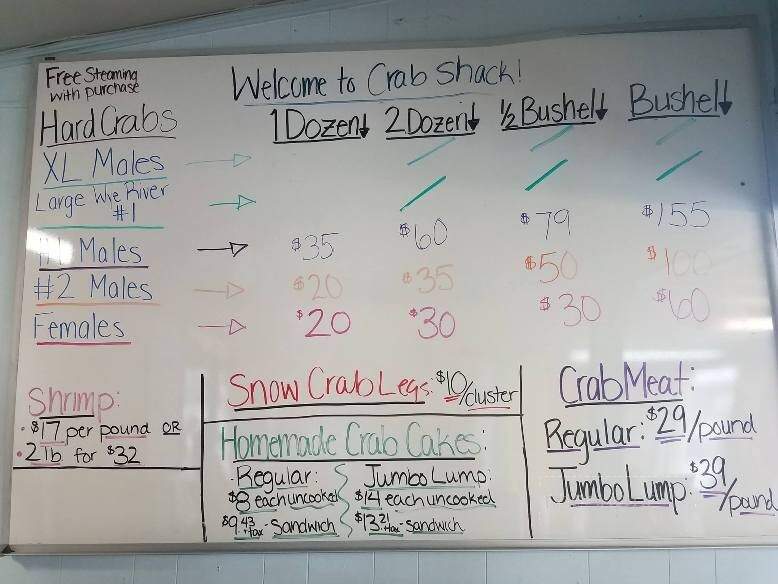 Free Steaming
with purchase
Welcome to Crab Shack!
Hard Crabs
1 Dozen↓ 2 Dozen↓ ½ Bushel↓ Bushel↓
XL Males →
Large Wye River
#1 →
Males → $35 $60 $79 $155
#2 Males → $20 $35 $50 $100
Females → $20 $30 $30 $60
Shrimp:
• $17 per pound OR
• 2 lb for $32
Snow Crab Legs: $10/cluster
Homemade Crab Cakes:
- Regular:
$8 each uncooked
$9.43 + tax - Sandwich
Jumbo Lump:
$14 each uncooked
$13.21 + tax - Sandwich
Crab Meat:
Regular: $29/pound
Jumbo Lump: $39/pound